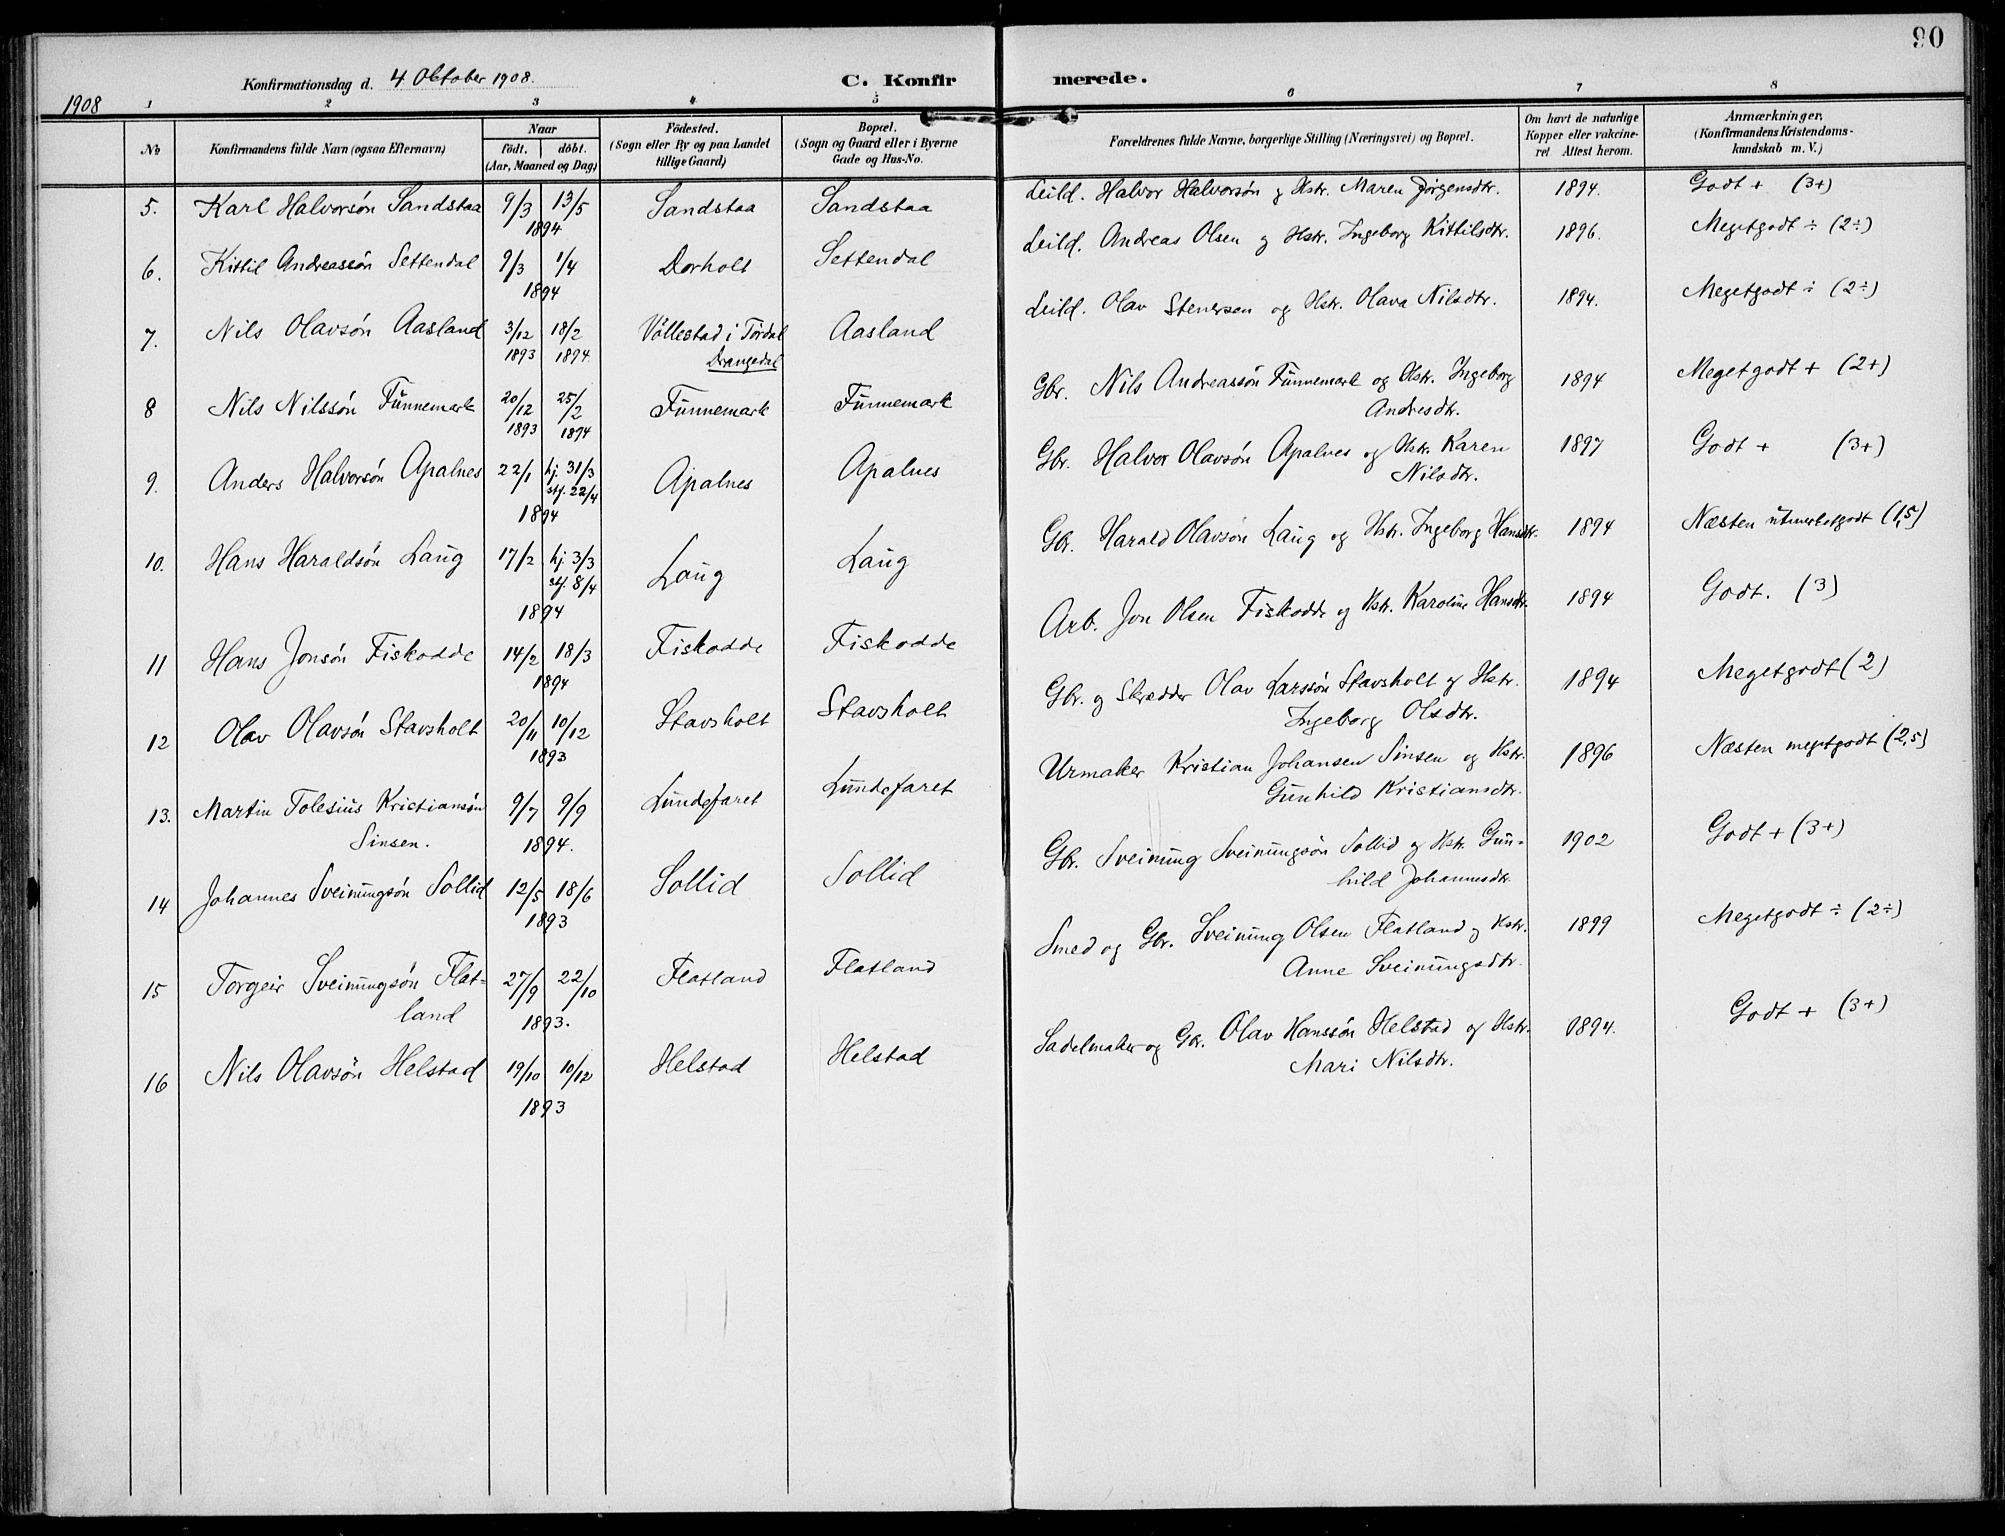 90
Konfirmationsdag d. 4 Oktober 1908.
C. Konfirmerede.
1908
1 2 3 4 5 6 7 8
No
Konfirmandens fulde Navn (ogsaa Efternavn)
Naar
født. døbt.
(Aar, Maaned og Dag)
Fødested.
(Sogn eller By og paa Landet
tillige Gaard)
Bopæl.
(Sogn og Gaard eller i Byerne
Gade og Hus-No.
Forældrenes fulde Navne, borgerlige Stilling (Næringsvei) og Bopæl.
Om havt de naturlige
Kopper eller vakcine-
ret. Attest herom.
Anmærkninger.
(Konfirmandens Kristendoms-
kundskab m. V.)
5. Karl Halvorsøn Sandstaa 9/3 13/5 Sandstaa Sandstaa Leild. Halvor Halvorsøn og Hstr. Maren Jørgensdtr. 1894. Godt + (3+)
1894
6. Kittil Andreassøn Settendal 9/3 1/4 Dorholt Settendal Leild. Andreas Olsen og Hstr. Ingeborg Kittilsdtr. 1896. Megetgodt ÷ (2÷)
1894
7. Nils Olavsøn Aasland 3/12 18/2 Vøllestad i Tørdal Aasland Leild. Olav Stenersen og Hstr. Olava Nilsdtr. 1894. Megetgodt ÷ (2÷)
1893 1894 Drangedal
8 Nils Nilssøn Funnemark 20/12 25/2 Funnemark Funnemark Gbr. Nils Andreassøn Funnemark og Hstr. Ingeborg 1894 Megetgodt + (2+)
1893 1894 Andresdtr.
9. Anders Halvorsøn Apalnes 22/1 hj. 31/3 Apalnes Apalnes Gbr. Halvor Olavsøn Apalnes og Hstr. Karen 1897 Godt + (3+)
stf. 22/4 Nilsdtr.
1894
10. Hans Haraldsøn Laug 17/2 hj. 3/3 Laug Laug Gbr. Harald Olavsøn Laug og Hstr. Ingeborg Hansdtr. 1894 Næsten utmerketgodt (1,5)
stf. 8/4
1894
11 Hans Jonsøn Fiskodde 14/2 18/3 Fiskodde Fiskodde Arb. Jon Olsen Fiskodde og Hstr. Karoline Hansdtr. 1894 Godt. (3)
1894
12 Olav Olavsøn Stavsholt 20/11 10/12 Stavsholt Stavsholt Gbr. og Skrædder Olav Larssøn Stavsholt og Hstr. 1894 Megetgodt (2)
1893 Ingeborg Olsdtr.
13. Martin Tolesius Kristiansøn 9/7 9/9 Lundefaret Lundefaret Urmaker Kristian Johansen Sinsen og Hstr. 1896 Næsten megetgodt (2,5)
Sinsen. 1894. Gunhild Kristiansdtr.
14 Johannes Sveinungsøn Sollid 12/5 18/6 Sollid Sollid Gbr. Sveinung Sveinungsøn Sollid og Hstr. Gun- 1902 Godt + (3+)
1893 hild Johannesdtr.
15 Torgeir Sveinungsøn Flat- 27/9 22/10 Flatland Flatland Smed og Gbr. Sveinung Olsen Flatland og Hstr. 1899 Megetgodt ÷ (2÷)
land 1893. Anne Sveinungsdtr.
16 Nils Olavsøn Helstad 19/10 10/12 Helstad Helstad Sadelmaker og Gbr. Olav Hanssøn Helstad og Hstr. 1894. Godt + (3+)
1893 Mari Nilsdtr.